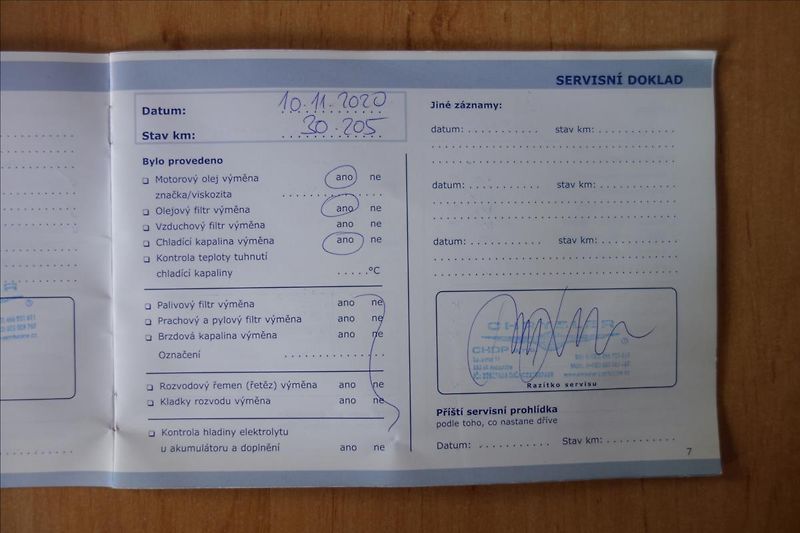 SERVISNÍ DOKLAD
Datum: 10.11.2020
Stav km: 30.205
Bylo provedeno
Motorový olej výměna ano ne
značka/viskozita
Olejový filtr výměna ano ne
Vzduchový filtr výměna ano ne
Chladící kapalina výměna ano ne
Kontrola teploty tuhnutí
chladící kapaliny .....°C
Palivový filtr výměna ano ne
Prachový a pylový filtr výměna ano ne
Brzdová kapalina výměna ano ne
Označení
Rozvodový řemen (řetěz) výměna ano ne
Kladky rozvodu výměna ano ne
Kontrola hladiny elektrolytu
u akumulátoru a doplnění ano ne
Jiné záznamy:
datum: stav km:
datum: stav km:
datum: stav km:
Razítko servisu
Příští servisní prohlídka
podle toho, co nastane dříve
Datum: Stav km:
7